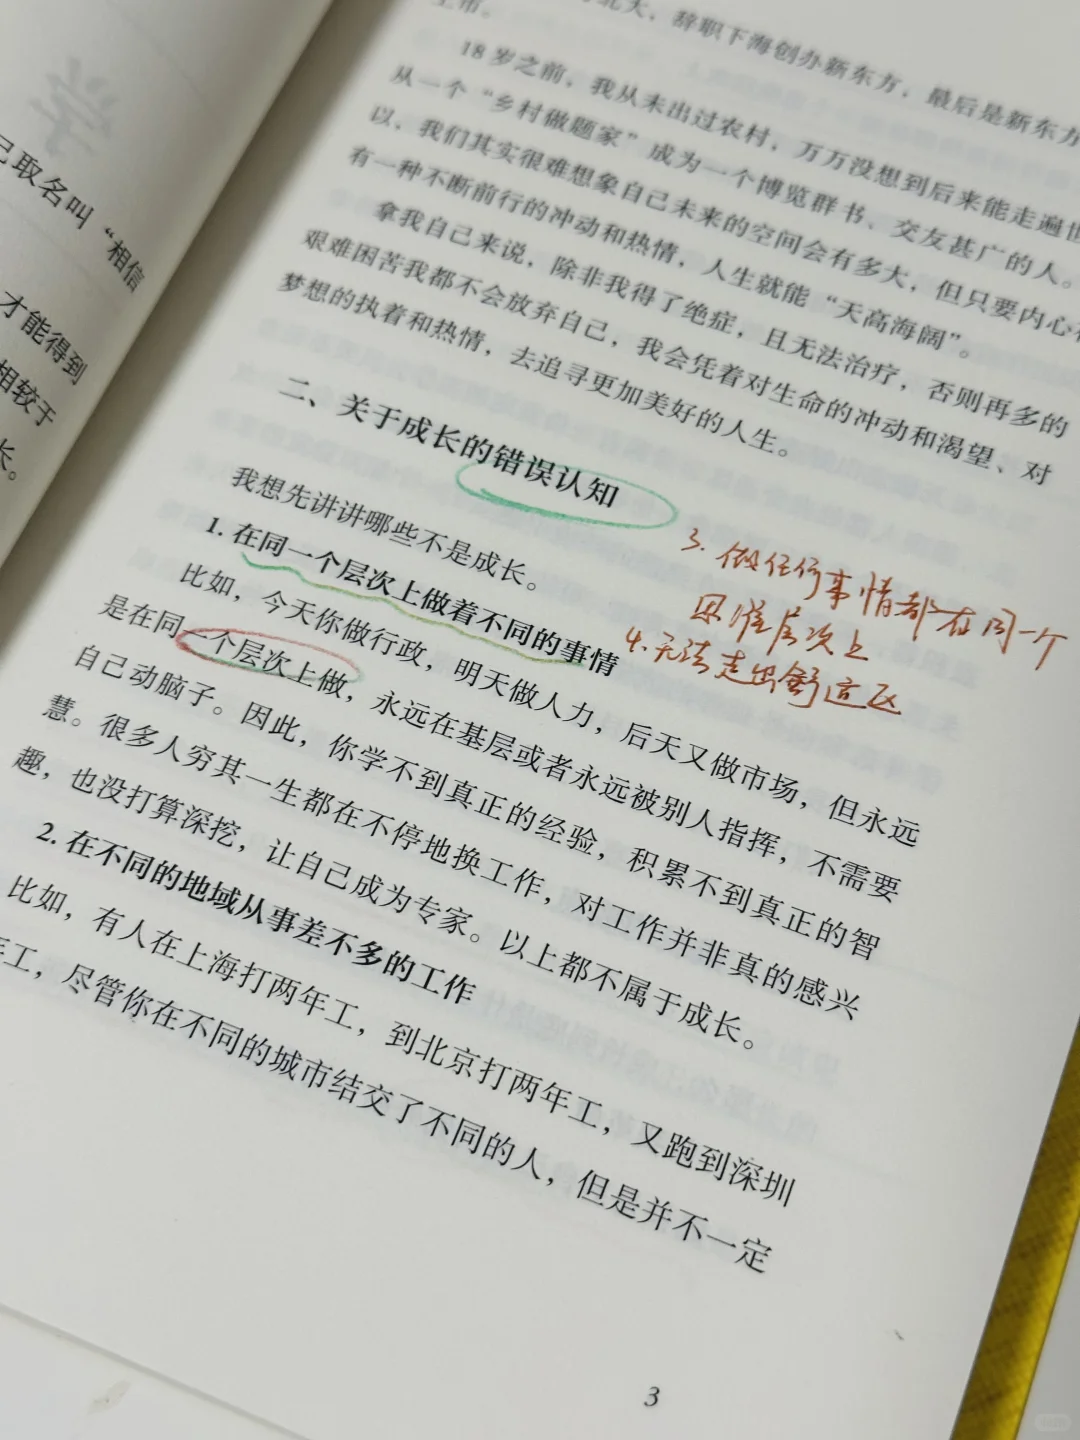 学
己取名叫“相信
才能得到
相较于
长。
北大，辞职下海创办新东方，最后是新东方
上市。
18岁之前，我从未出过农村，万万没想到后来能走遍世
从一个“乡村做题家”成为一个博览群书、交友甚广的人。
以，我们其实很难想象自己未来的空间会有多大，但只要内心有
有一种不断前行的冲动和热情，人生就能“天高海阔”。
拿我自己来说，除非我得了绝症，且无法治疗，否则再多的
艰难困苦我都不会放弃自己，我会凭着对生命的冲动和渴望、对
梦想的执着和热情，去追寻更加美好的人生。
二、关于成长的错误认知
我想先讲讲哪些不是成长。
1. 在同一个层次上做着不同的事情
比如，今天你做行政，明天做人力，后天又做市场，但永远
是在同一个层次上做，永远在基层或者永远被别人指挥，不需要
自己动脑子。因此，你学不到真正的经验，积累不到真正的智
慧。很多人穷其一生都在不停地换工作，对工作并非真的感兴
趣，也没打算深挖，让自己成为专家。以上都不属于成长。
2. 在不同的地域从事差不多的工作
比如，有人在上海打两年工，到北京打两年工，又跑到深圳
年工，尽管你在不同的城市结交了不同的人，但是并不一定
3. 做任何事情都在同一个
思维层次上
4. 无法走出舒适区
3